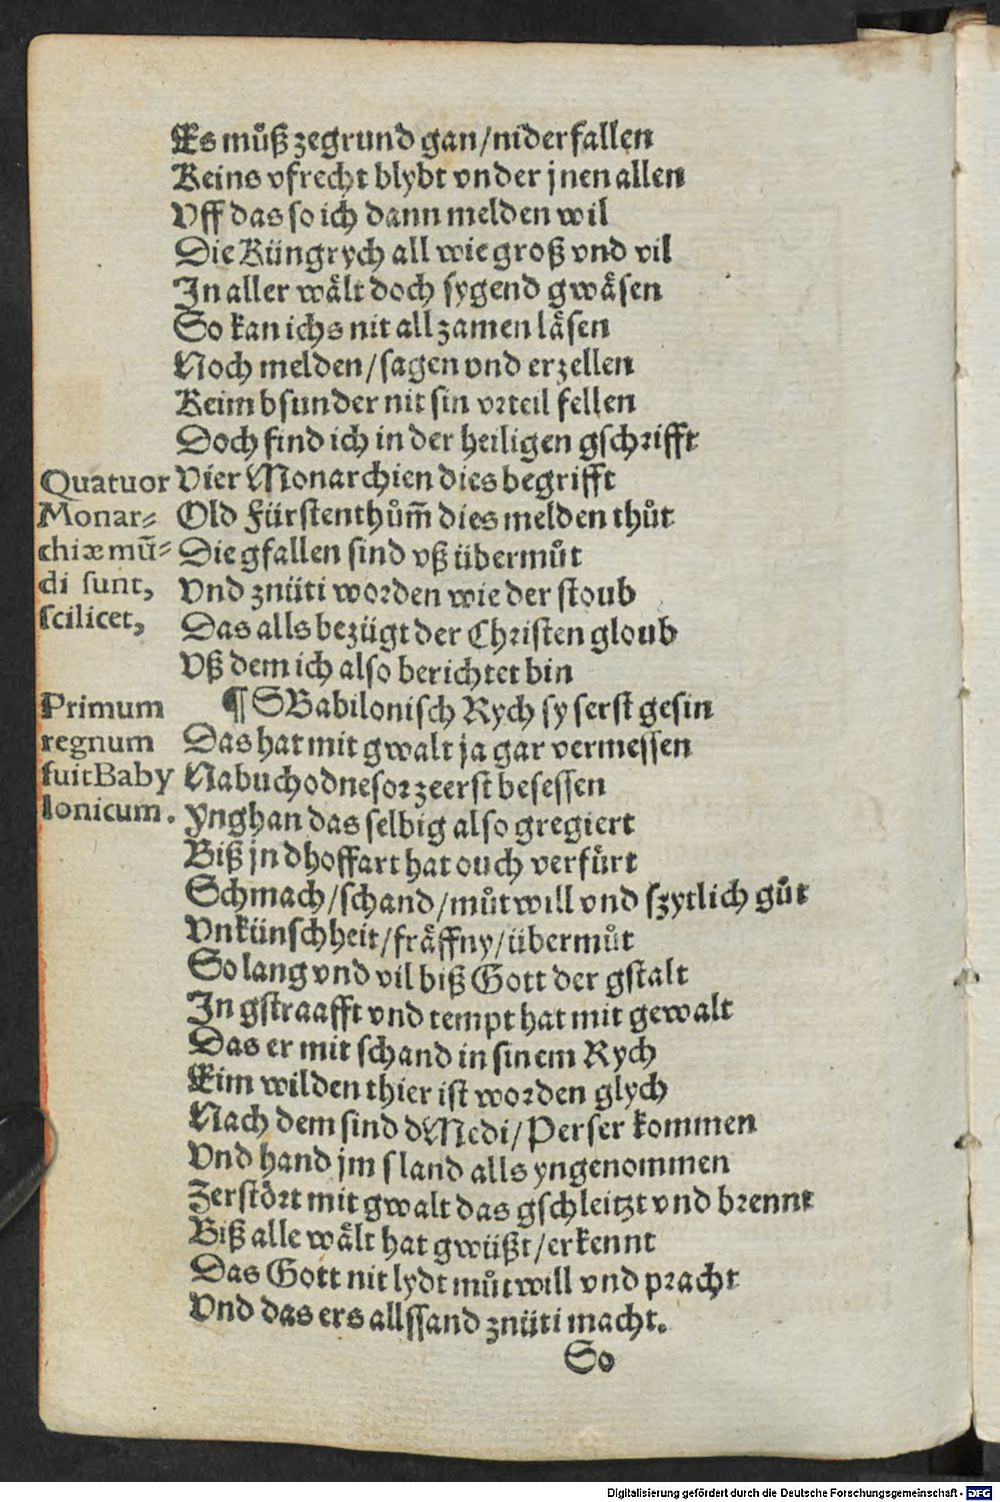 Es muͦß zegrund gan/niderfallen
Keins vfrecht blybt vnder jnen allen
Vff das so ich dann melden wil
Die Küngrych all wie groß vnd vil
In aller waͤlt doch sygend gwaͤsen
So kan ichs nit all zamen laͤsen
Noch melden/sagen vnd erzellen
Keim bsunder nit sin vrteil fellen
Doch find ich in der heiligen gschrifft
Quatuor
Monar⸗
chiæ mū⸗
di sunt,
scilicet,
Vier Monarchien dies begrifft
Old Fürstenthuͦm̄ dies melden thuͦt
Die gfallen sind vß übermuͦt
Vnd znüti worden wie der stoub
Das alls bezügt der Christen gloub
Vß dem ich also berichtet bin
Primum
regnum
fuit Baby
lonicum.
¶ S Babilonisch Rych sy serst gesin
Das hat mit gwalt ja gar vermessen
Nabuchodnesor zeerst besessen
Ynghan das selbig also gregiert
Biß jn dhoffart hat ouch verfuͤrt
Schmach/schand/muͦtwill vnd szytlich guͦt
Vnkünschheit/fraͤffny/übermuͦt
So lang vnd vil biß Gott der gstalt
In gstraafft vnd tempt hat mit gewalt
Das er mit schand in sinem Rych
Eim wilden thier ist worden glych
Nach dem sind dMedi/Perser kommen
Vnd hand jm sland alls yngenommen
Zerstoͤrt mit gwalt das gschleitzt vnd brennt
Biß alle waͤlt hat gwüßt/erkennt
Das Gott nit lydt muͦtwill vnd pracht
Vnd das ers allssand znüti macht.
So
Digitalisierung gefördert durch die Deutsche Forschungsgemeinschaft - DFG